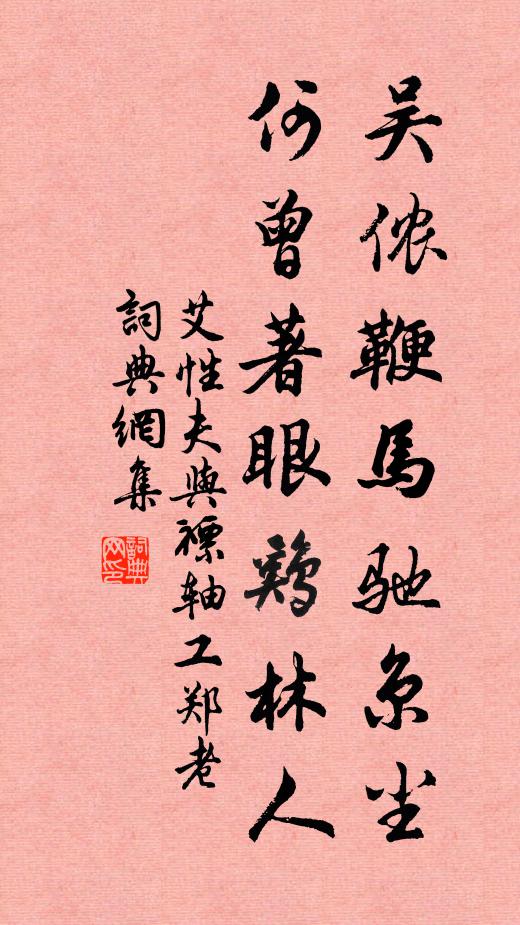 吴侬鞭馬驰京尘
何曾著眼鷄林人
艾性夫與褾轴工郑老
詞典網集
詞典网印